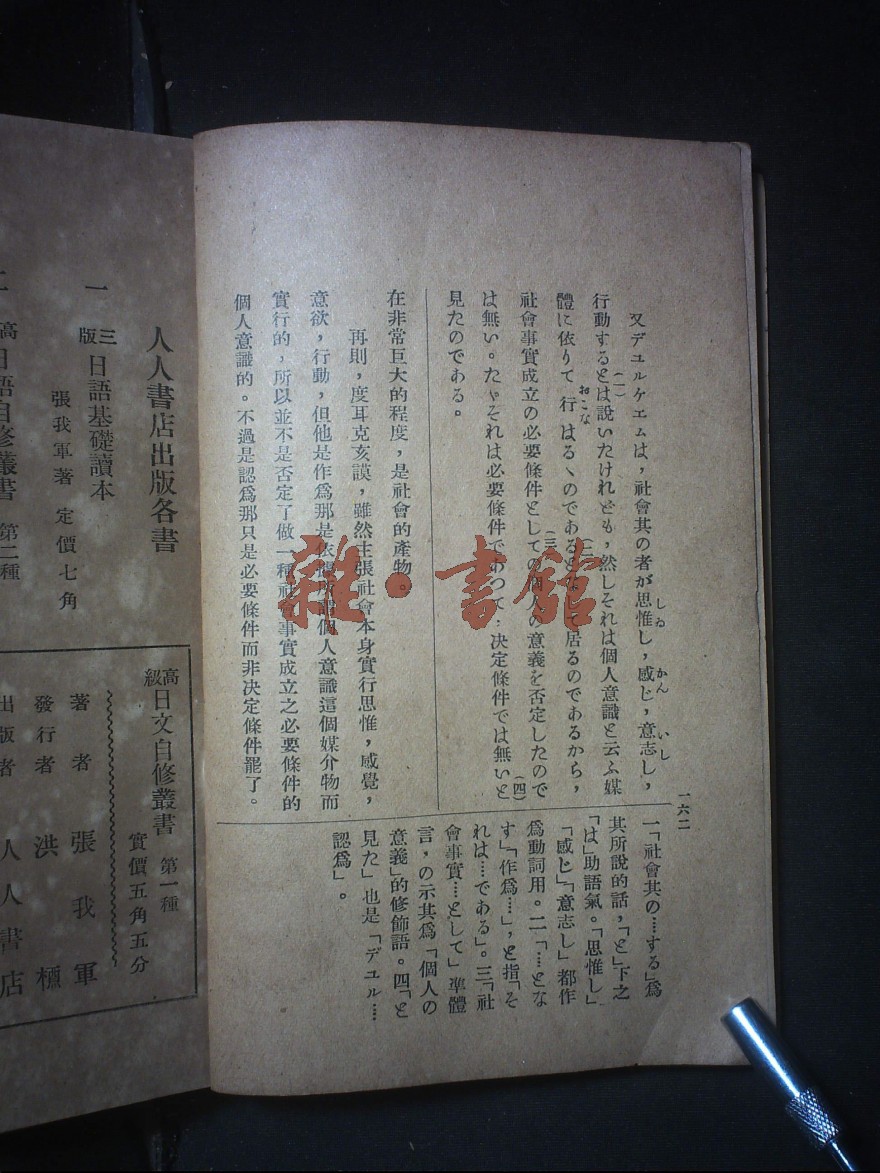 又デユルケエムは，社會其の者が思惟し，感じ，意志し，
しゐ
かん
いし
(一)
行動するとは説いたけれども，然しそれは個人意識と云ふ媒
(二)
體に依りて行はるゝのであると 居るのであるから，
おこな
(三)
社會事實成立の必要條件としての個人の意義を否定したので
(四)
は無い。たゞそれは必要條件であつて，決定條件では無いと
見たのである。
在非常巨大的程度，是社會的產物。
再則，度耳克亥謨，雖然主張社會本身實行思惟，感覺，
意欲，行動，但他是作爲那是依據所謂個人意識這個媒介物而
實行的，所以並不是否定了做一種社會事實成立之必要條件的
個人意識的。不過是認爲那只是必要條件而非決定條件罷了。
一六二
一「社會其の……する」爲
其所說的話，「と」下之
「は」助語氣。「思惟し」
「感じ」「意志し」都作
爲動詞用。二「……とな
す」「作爲……」，と指「そ
れは……である」。三「社
會事實……として」準體
言，の示其爲「個人の
意義」的修飾語。四「と
見た」也是「デユル……
認爲」。
雜·書館
人人書店出版各書
一 三版 日語基礎讀本
張我軍著 定價七角
二 高 日語自修叢書 第二種
高級 日文自修叢書 第一種
實價五角五分
著者 張我軍
發行者 洪櫃
出版者 人人書店